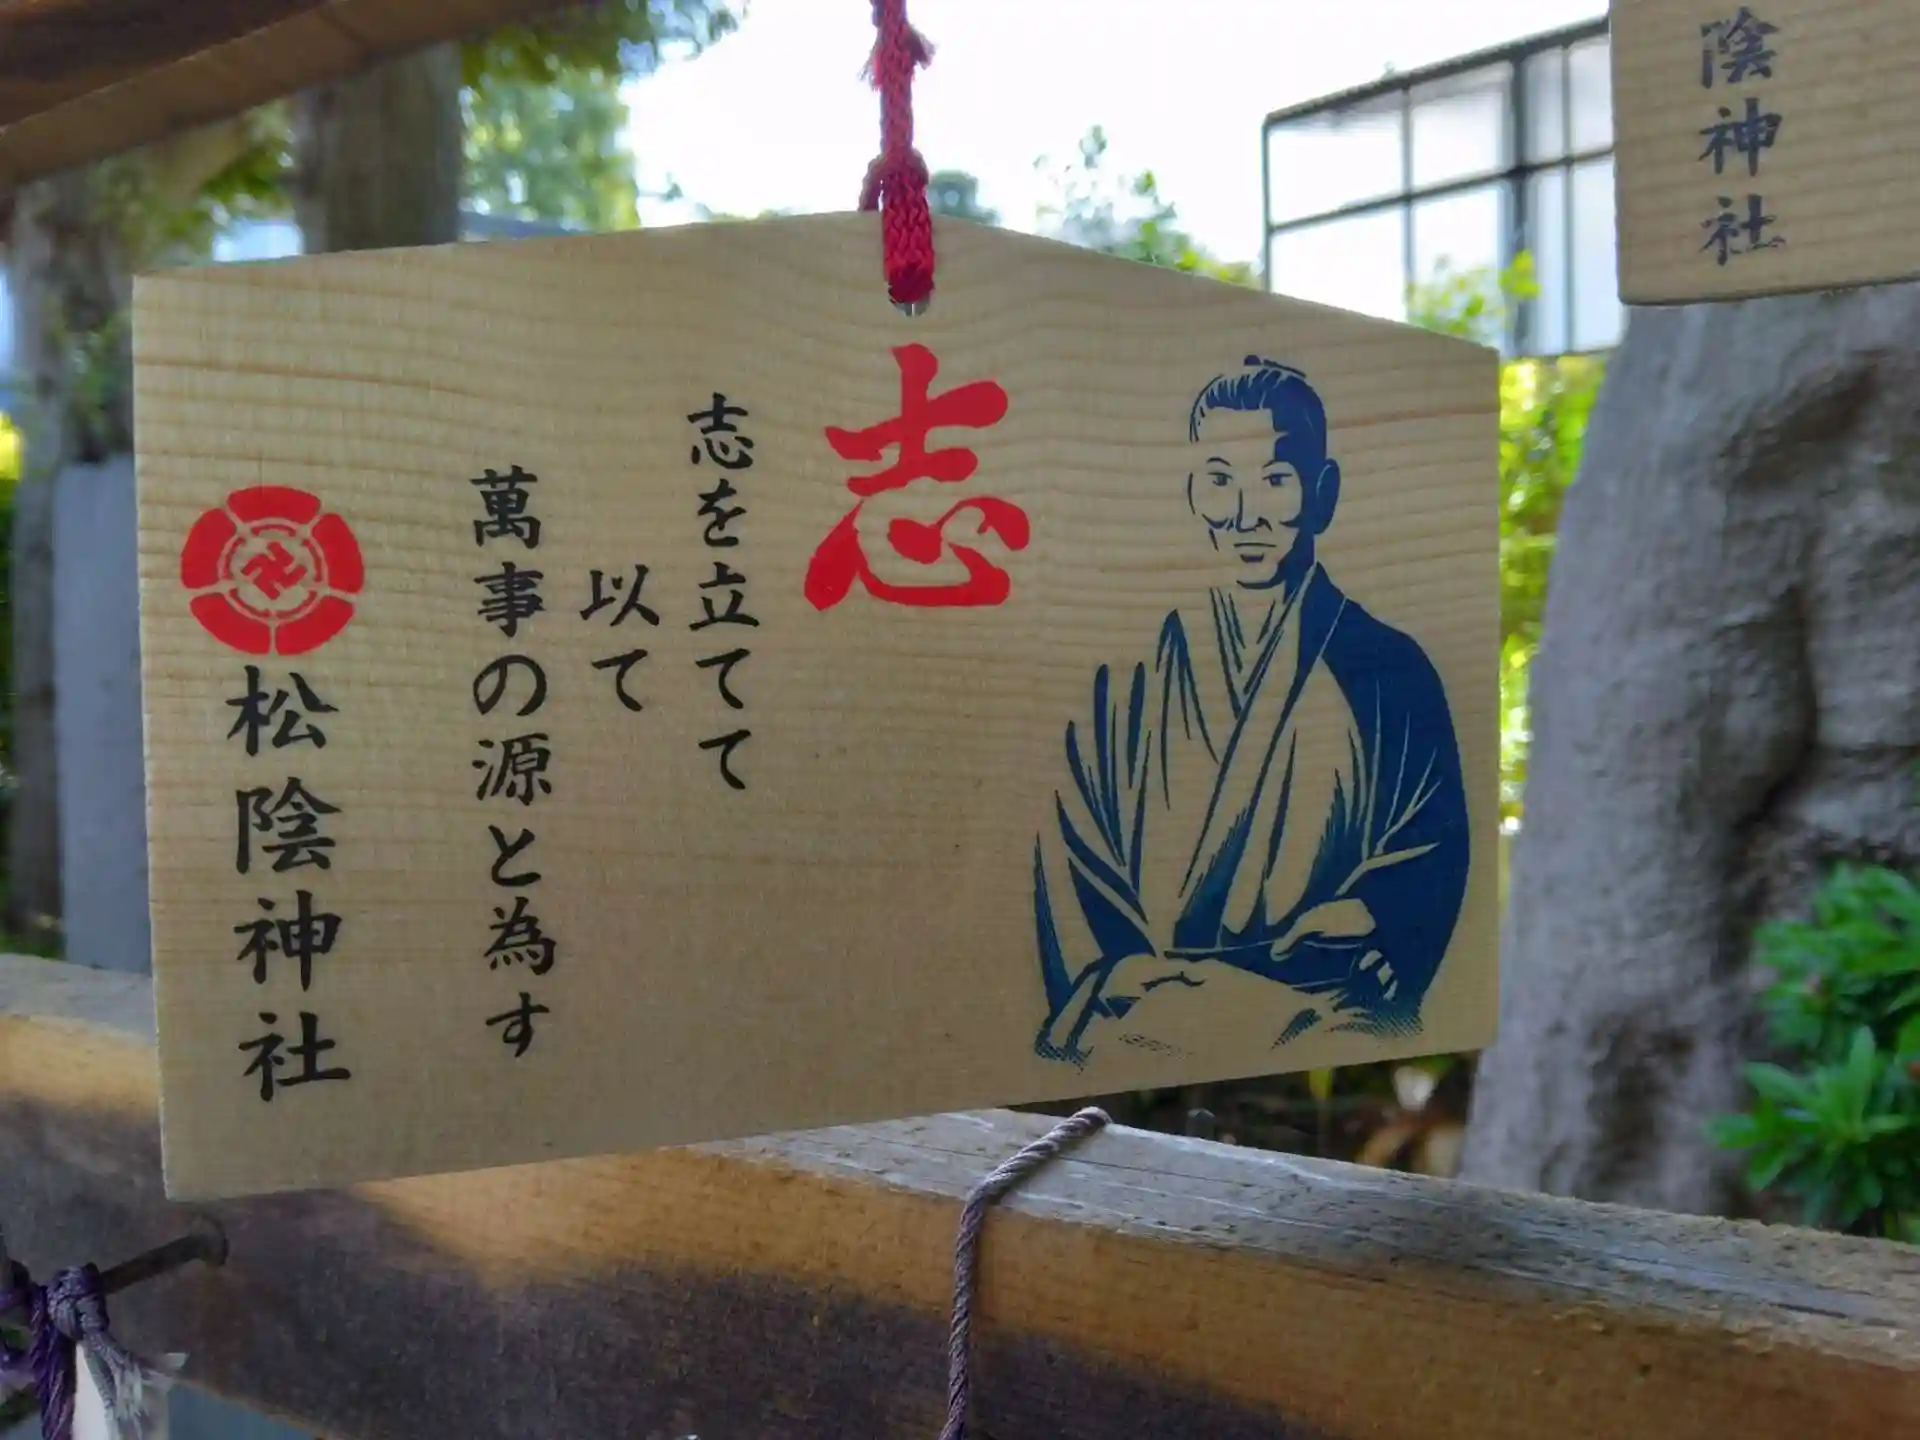 志
志を立てて
以て
萬事の源と為す
松陰神社
陰神社